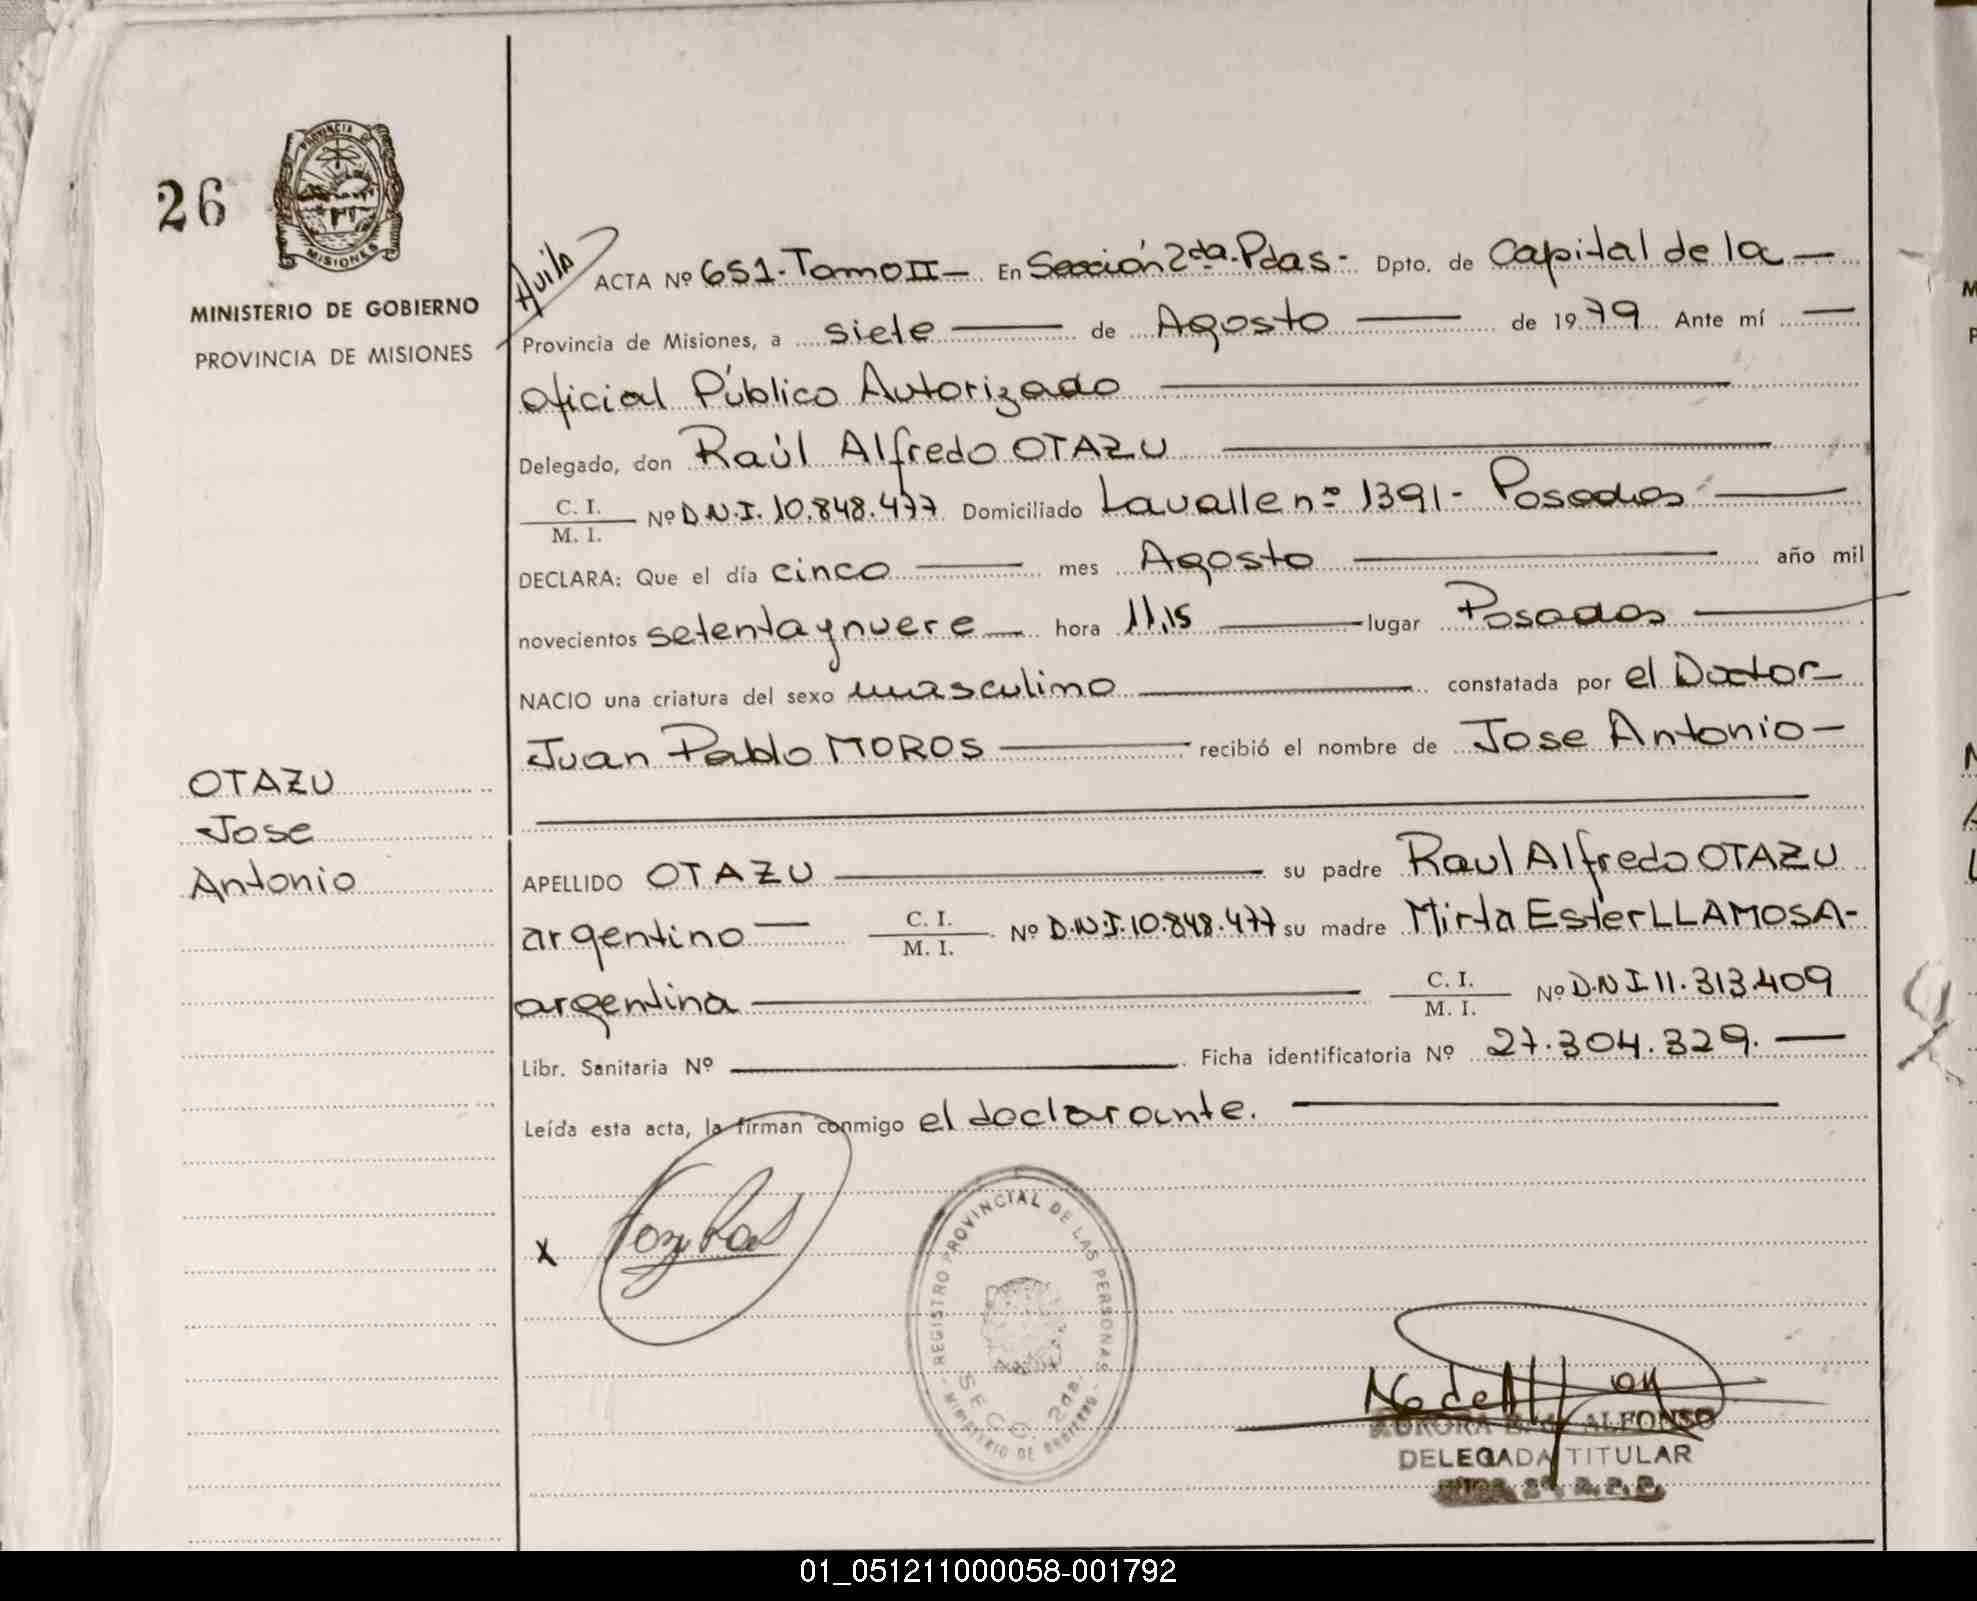 26
PROVINCIA DE
MISIONES
MINISTERIO DE GOBIERNO
PROVINCIA DE MISIONES
Avila
ACTA Nº 651.Tomo II En Sección 2da.Pdas- Dpto. de Capital de la
Provincia de Misiones, a siete de Agosto de 1979 Ante mí
Oficial Público Autorizado
Delegado, don Raúl Alfredo OTAZU
C. I.
M. I.
Nº D.N.I. 10.848.477 Domiciliado Lavalle nº 1391- Posadas
DECLARA: Que el día cinco mes Agosto año mil
novecientos setenta y nueve hora 11,15 lugar Posadas
NACIO una criatura del sexo masculino constatada por el Doctor
Juan Pablo MOROS recibió el nombre de Jose Antonio
OTAZU
Jose
Antonio
APELLIDO OTAZU su padre Raul Alfredo OTAZU
argentino C. I.
M. I. Nº D.N.I.10.848.477 su madre Mirta Ester LLAMOSA-
argentina C. I.
M. I. Nº D.N I 11.313.409
Libr. Sanitaria Nº Ficha identificatoria Nº 27.304.329.
Leída esta acta, la firman conmigo el declarante.
X
REGISTRO PROVINCIAL DE LAS PERSONAS
SECC. 2da.
MINISTERIO DE GOBIERNO
AURORA ALFONSO
DELEGADA TITULAR
01_051211000058-001792